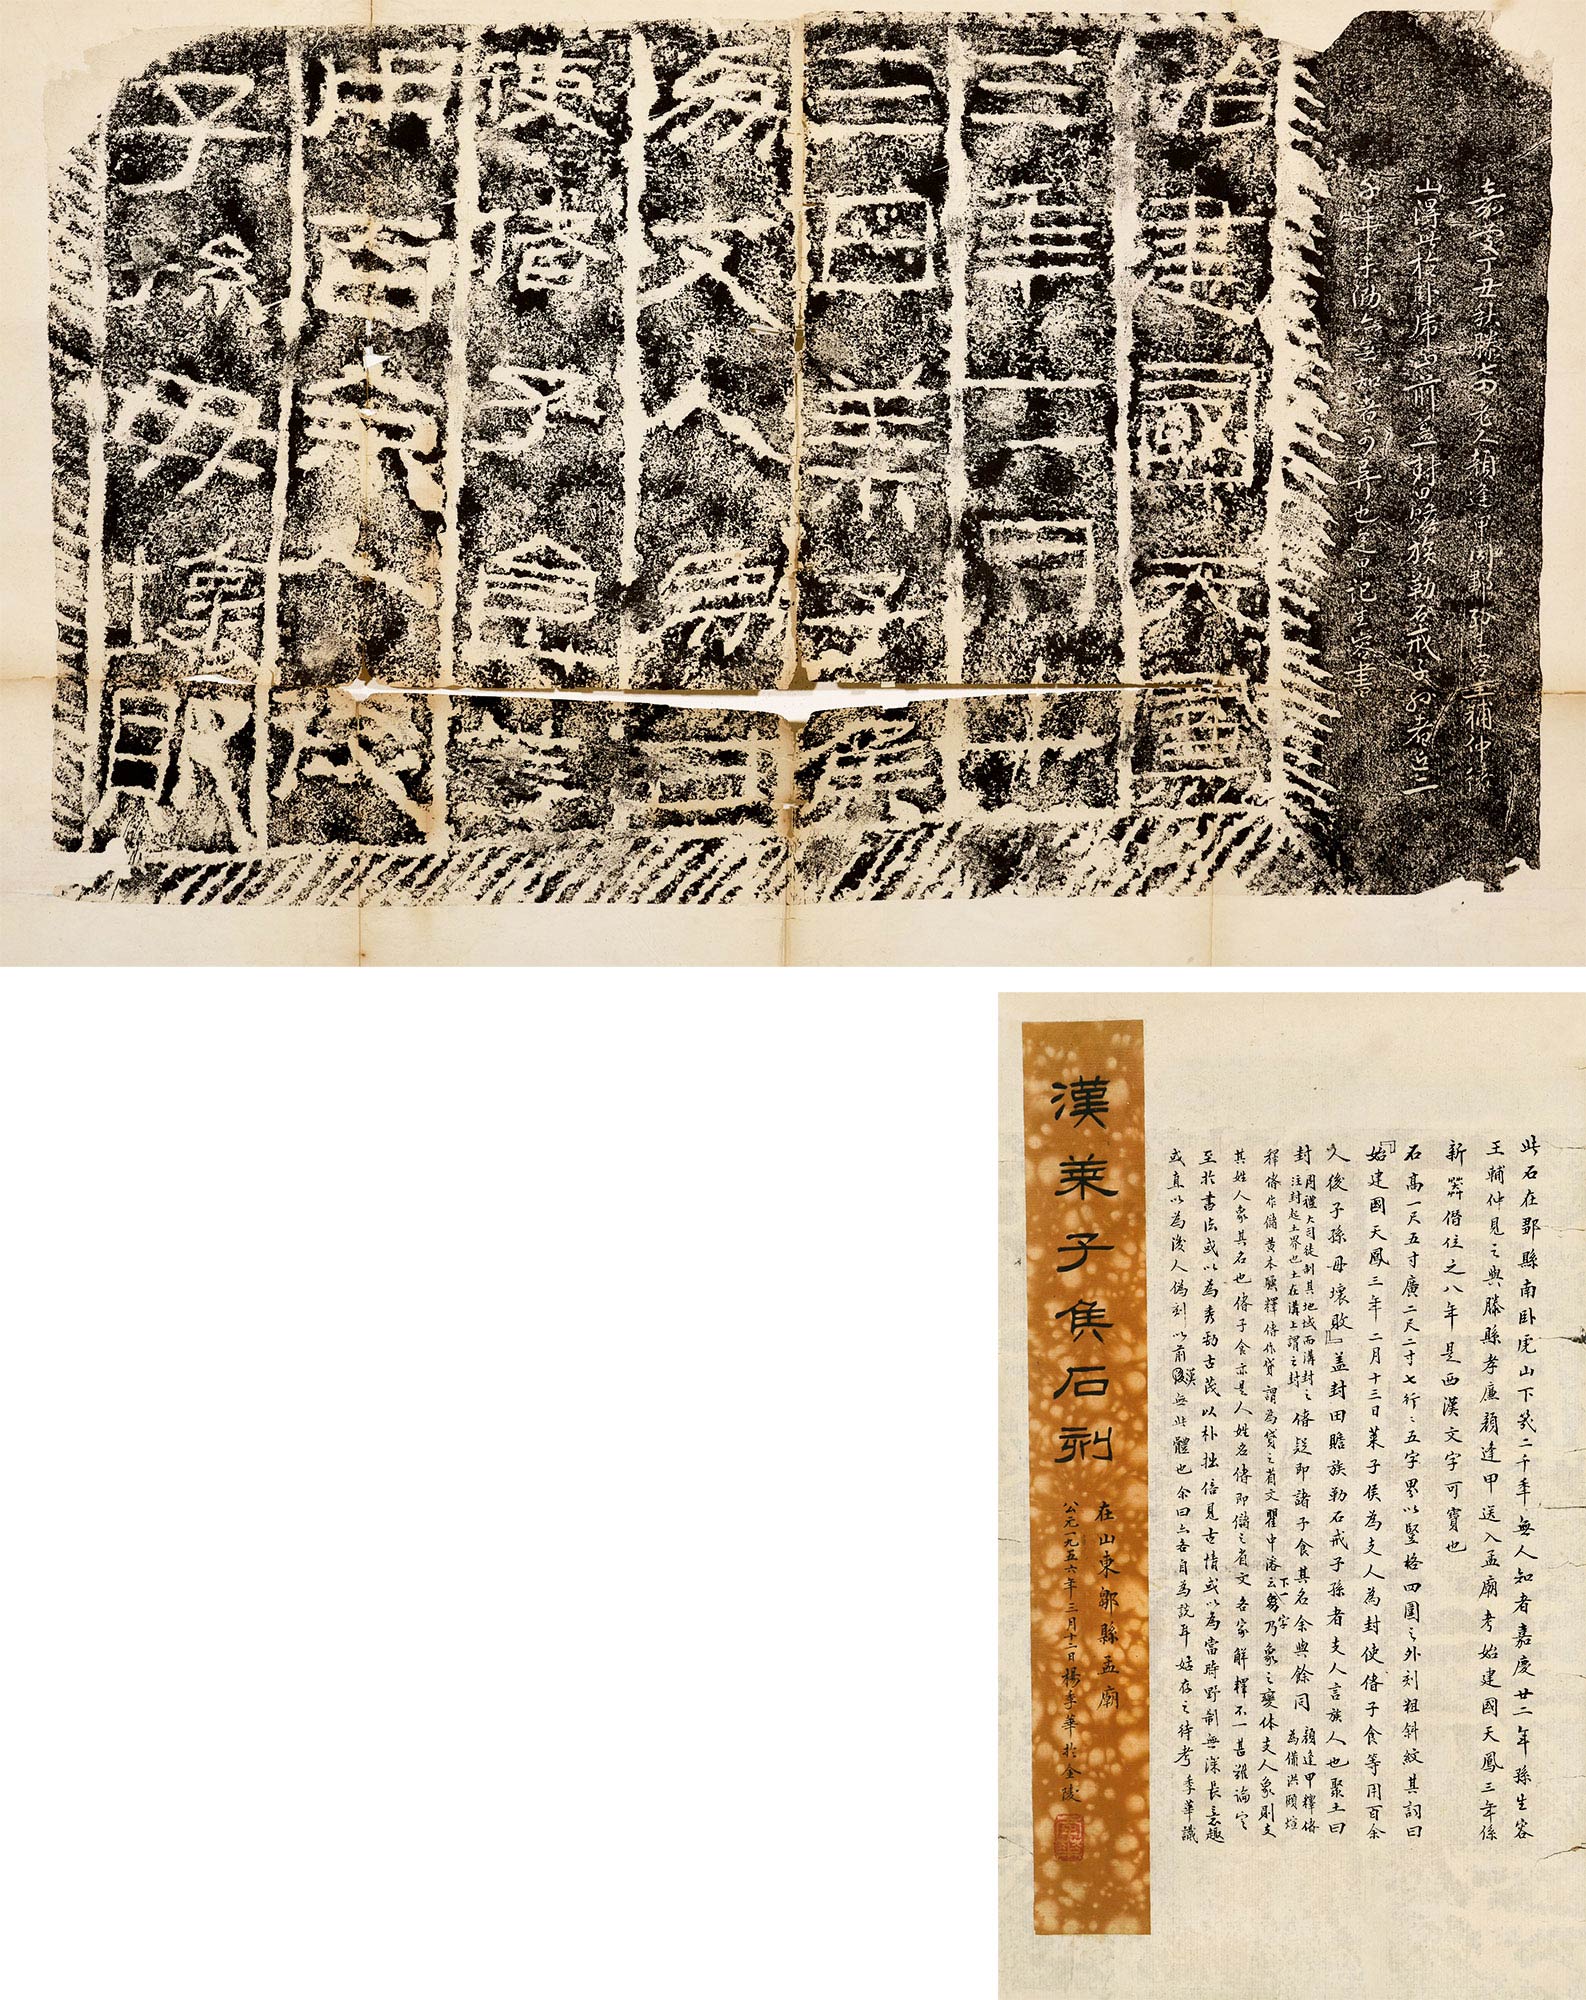 始建國天鳳
三年二月十
三日萊子侯
為支人為封
使偖子食等
用百余人後
子孫毋壞敗
嘉慶丁丑秋滕七四老人顏逢甲同鄒孫生容王輔仲緒
山得此於臥虎山前蓋封田贍族勒石戒子孫者近二
千年未泐亦無知者可異也逢甲記生容書
此石在鄒縣南臥虎山下幾二千年無人知者嘉慶廿二年孫生容
王輔仲見之與滕縣孝廉顏逢甲送入孟廟考始建國天鳳三年係
新莽僭位之八年是西漢文字可寶也
石高一尺五寸廣二尺二寸七行行五字界以豎格四圍之外刻粗斜紋其詞曰
『始建國天鳳三年二月十三日萊子侯為支人為封使偖子食等用百余
人後子孫毋壞敗』蓋封田贍族勒石戒子孫者支人言族人也聚土曰
封周禮大司徒制其地域而溝封之注封起土界也土在溝上謂之封偖疑即諸子食其名余與餘同顏逢甲釋偖為備洪頤煊
釋偖作儲黃本驥釋偖作貸謂為貸之省文瞿中溶云為下一字乃象之變体支人象則支
其姓人象其名也偖子食亦是人姓名偖即儲之省文各家解釋不一甚難論定
至於書法或以為秀勁古茂以朴拙倍見古情或以為當時野制無深長意趣
或直以為後人偽刻以前漢無此體也余曰亦各自為說耳姑存之待考 季華識
漢萊子侯石刻
在山東鄒縣孟廟
公元一九五六年三月十二日楊季華於金陵